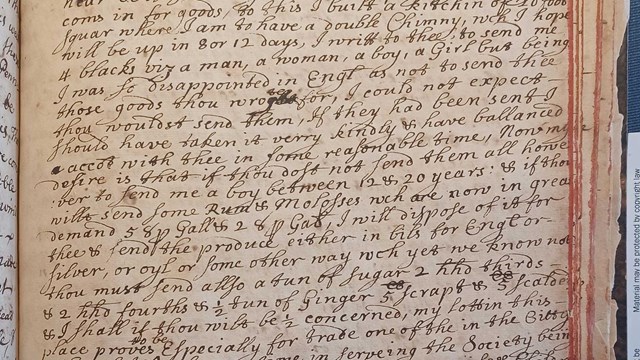 coms in for goods, to this I built a kitchin of 20 foot
squar where I am to have a double Chimny, wch I hope
will be up in 8 or 12 days, I writt to thee, to send me
4 blacks viz a man, a woman, a boy, a Girl but being
I was so disappointed in Engl as not to send thee
those goods thou wrote for, I could not expect
thou wouldst send them, If they had been sent I
should have taken it verry kindly & have ballanced
accot with thee in some reasonable time, Now my
desire is that if thou dost not send them all howe
:ver to send me a boy between 12 & 20 years: & if thou
wilt send some Rum & Molosses wch are now in grea
demand 5 8 ꝑ Gall & 2 8 ꝑ Gall, I will dispose of it for
thee & send the produce either in bils for Engl or
silver, or oyl or some other way wch yet we know not
thou must send allso a tun of sugar 2 hhd thirds
& 2 hhd fourths & ½ tun of Ginger 5 scrapt & 5 scalded
& I shall if thou wilt be ½ concerned, my lott in this
place proves to be Especially for trade one of the in the Citty
in serving the Society bein
Material may be protected by copyright law